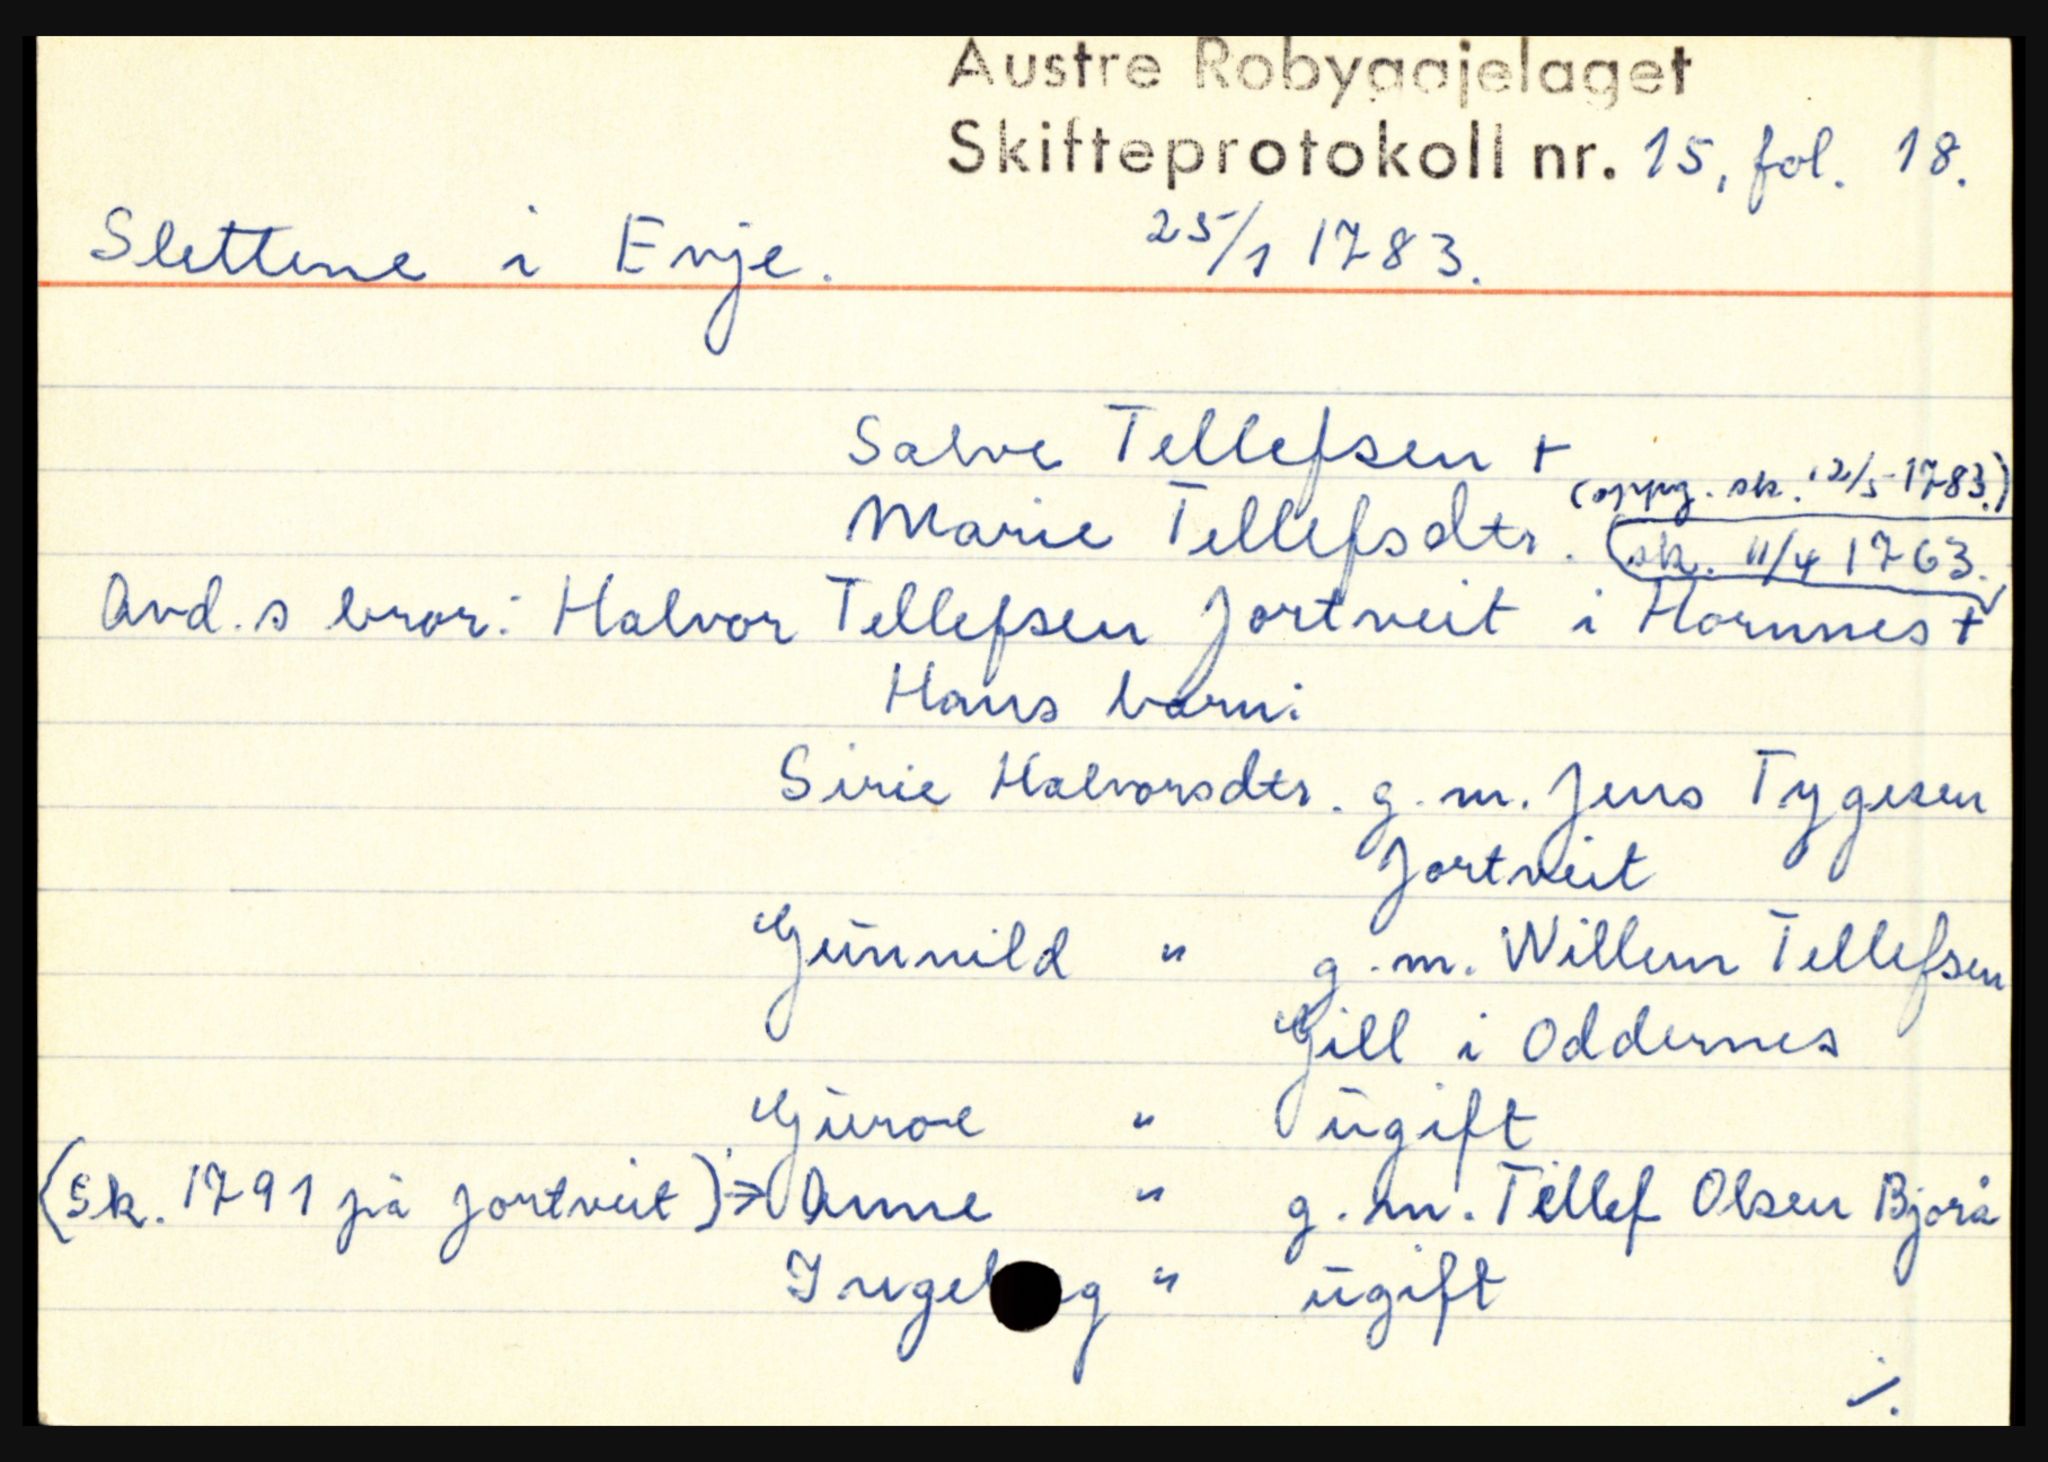 Austre Robyggjelaget
Skifteprotokoll nr. 15, fol. 18.
Slettene i Evje. 25/1 1783.
Salve Tellefsen +
(oppg. sk. 12/5 1783.)
Marie Tellefsdtr.
(sk. 11/4 1763.
Avd.s bror: Halvor Tellefsen Jortveit i Hornnes +
Hans barn:
Sirie Halvorsdtr. g.m. Jens Tygesen
Jortveit
Gunnild " g.m. Willum Tellefsen
Gill i Oddernes
Guroe " ugift
(Sk. 1791 på Jortveit) → Anne " g.m. Tellef Olsen Bjorå
Ingeb g " ugift
./.